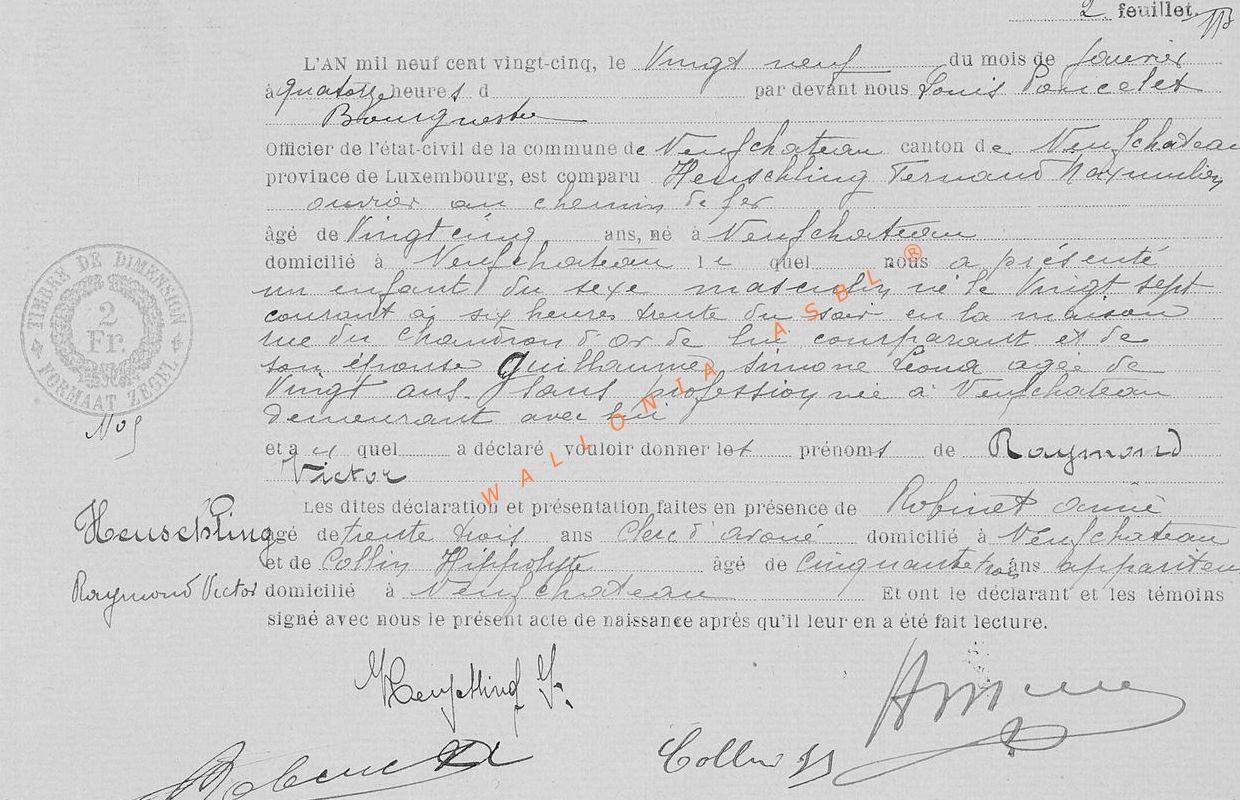 2 feuillet.
L'AN mil neuf cent vingt-cinq, le Vingt neuf du mois de Janvier
à quatorze heures d par devant nous Louis Poncelet
Bourgmestre
Officier de l'état-civil de la commune de Neufchateau canton de Neufchateau
province de Luxembourg, est comparu Heuschling Fernand Maximilien
ouvrier au chemin de fer
âgé de Vingt cinq ans, né à Neufchateau
domicilié à Neufchateau le quel nous a présenté
un enfant du sexe masculin né le Vingt sept
courant à six heures trente du soir en la maison
rue du Chaudron d'or de lui comparant et de
son épouse Guillaume Simone Léona agée de
Vingt ans sans profession née à Neufchateau
demeurant avec lui
et a quel a déclaré vouloir donner les prénoms de Raymond
Victor
Les dites déclaration et présentation faites en présence de Robinet
âgé de trente trois ans Clerc d'avoué domicilié à Neufchateau
et de Collin Hippolyte âgé de Cinquante trois ans appariteur
domicilié à Neufchateau Et ont le déclarant et les témoins
signé avec nous le présent acte de naissance après qu'il leur en a été fait lecture.
TIMBRE DE DIMENSION
2
Fr.
FORMAAT ZEGEL
No 5
Heuschling
Raymond Victor
Heuschling F.
Robinet
Collin
WALLONIA ASBL ®